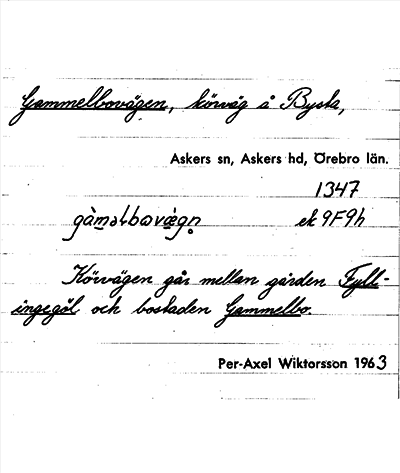 Gammelbovägen, körväg å Bysta,
Askers sn, Askers hd, Örebro län.
1347
gàmalbωvæ̀gn̥ ek 9F9h
Körvägen går mellan gården Fyll-
ingegöl och bostaden Gammelbo.
Per-Axel Wiktorsson 1963